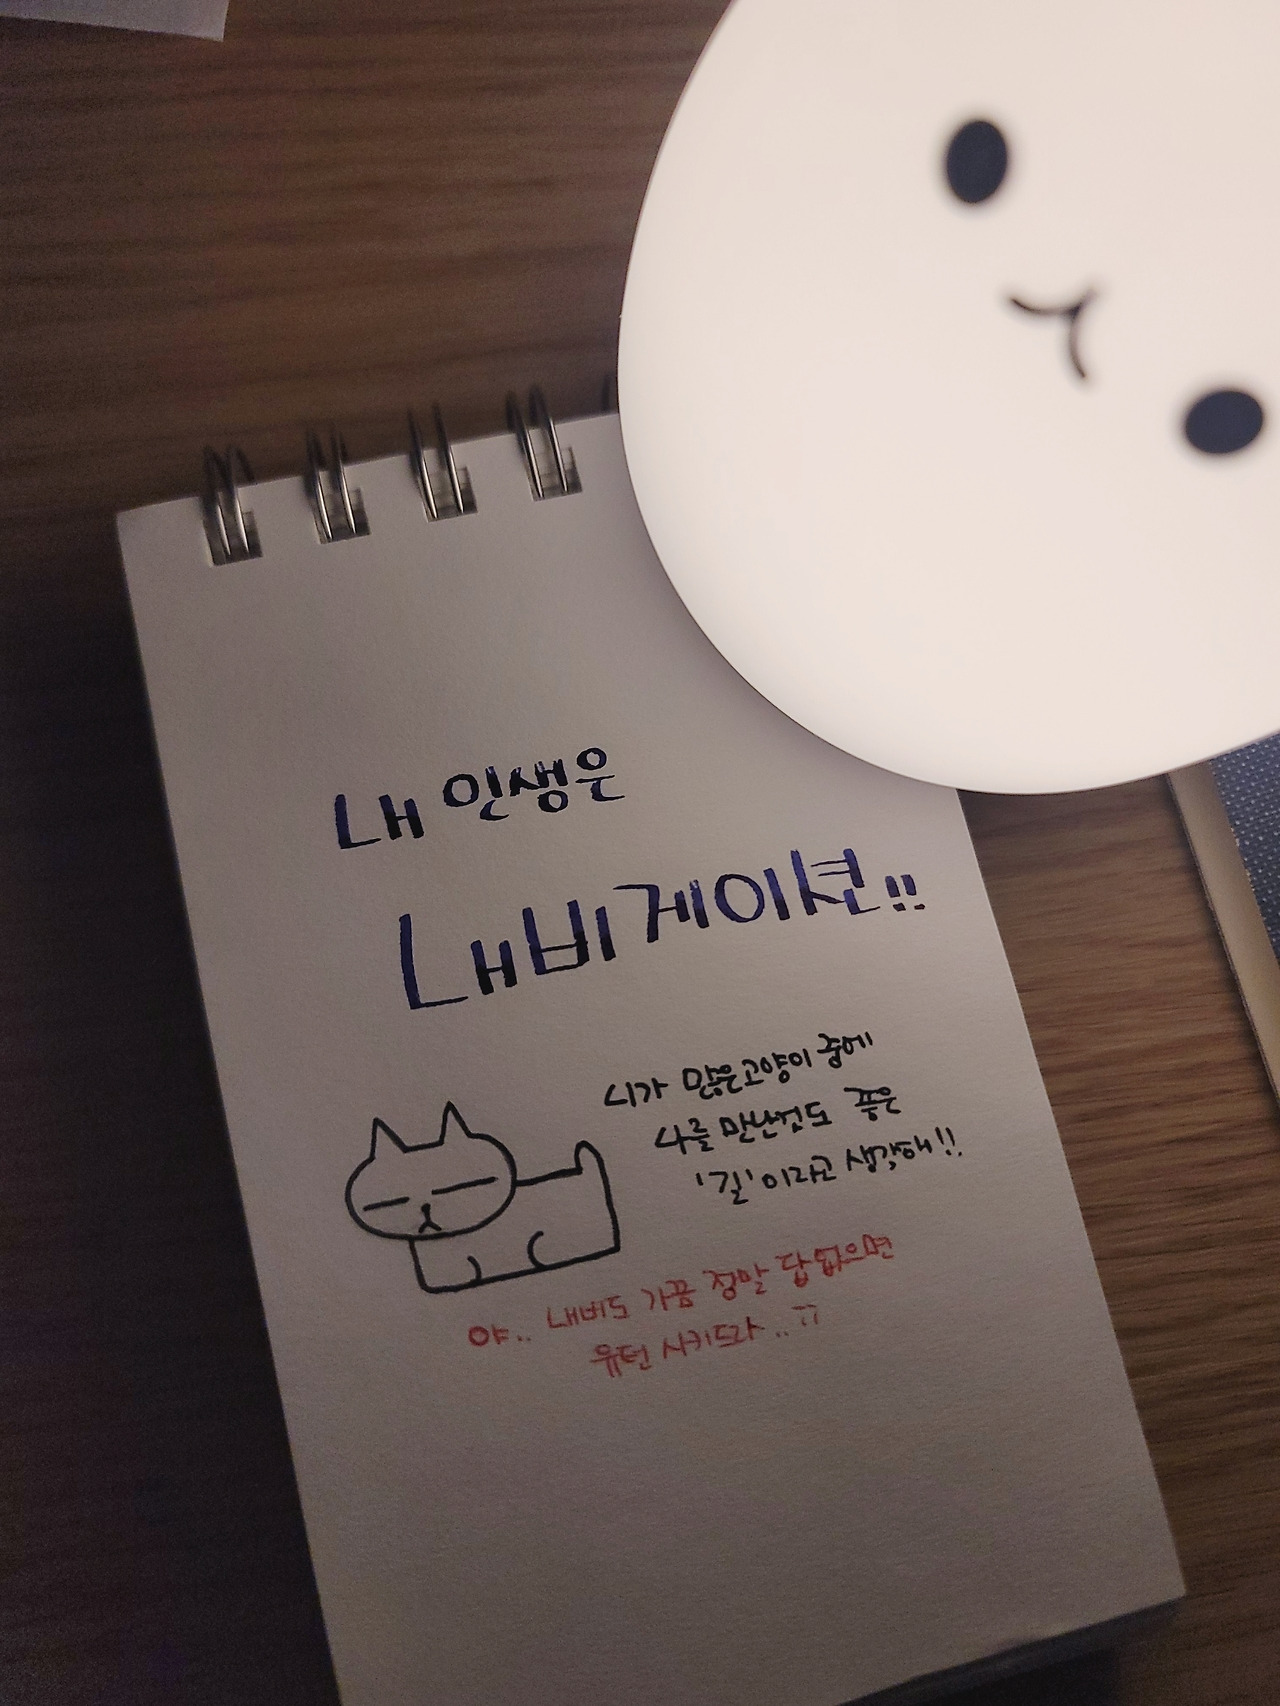 내 인생은
내비게이션!!
니가 많은고양이 중에
나를 만난것도 좋은
'길'이라고 생각해!!
야.. 내비도 가끔 정말 답 없으면
유턴 시키드라..ㅠ